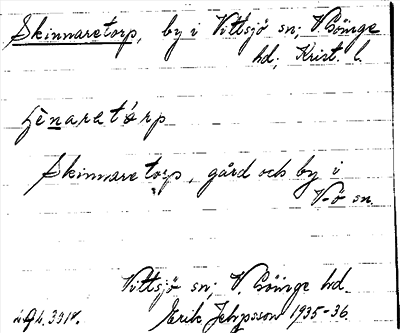 Skinnaretorp, by i Vittsjö sn; V. Göinge
hd; Krist. l.
Skinnaretorp, gård och by i
V-ö sn.
Vittsjö sn; V. Göinge hd.
Erik Jeppsson 1935-36.